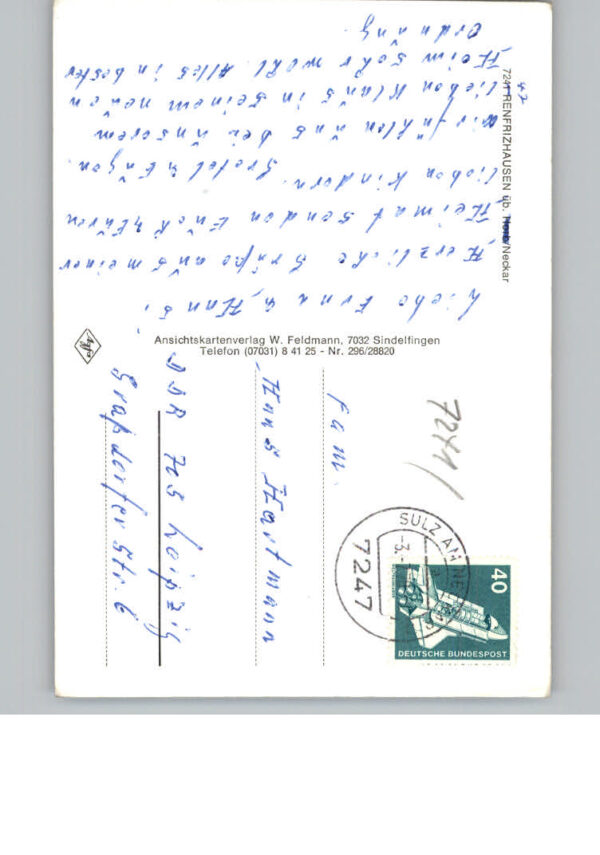 7241 RENFRIZHAUSEN üb. Horb/Neckar
47
Liebe Erna u. Hans,
Herzliche Grüße aus meiner
Heimat senden Euch Euren
lieben Kindern. Gretel u. Eugen.
Wir fühlen uns bei unserem
lieben Klaus in seinem neuen
Heim sehr wohl. Alles in bester
Ordnung.
Ansichtskartenverlag W. Feldmann, 7032 Sindelfingen
Telefon (07031) 8 41 25 - Nr. 296/28820
Agfa
7241/
SULZ AM NE
-3.
7247
40
DEUTSCHE BUNDESPOST
Fam.
Hans Hartmann
DDR 705 Leipzig
Graßdorfer Str. 6